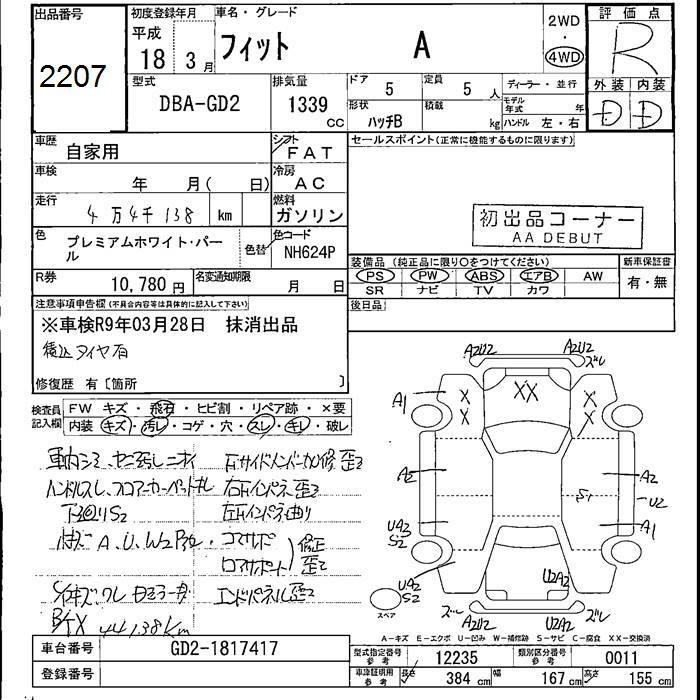 出品番号
2207
初度登録年月
平成
18 3月
車名・グレード
フィット A
2WD
・
4WD
評価点
R
型式
DBA-GD2
排気量
1339 cc
ドア 5
定員 5 人
形状 ハッチB
積載 kg
ディーラー・並行
モデル年式 年
ハンドル 左・右
外装 内装
D D
車歴
自家用
シフト
FAT
セールスポイント(正常に機能するものに限ります)
車検
年 月( 日)
冷房
AC
走行
4万4千138 km
燃料
ガソリン
初出品コーナー
AA DEBUT
色
プレミアムホワイト・パール
色替
色コード
NH624P
装備品 (純正品に限り○をつけてください)
PS PW ABS エアB AW
SR ナビ TV カワ
新車保証書
有・無
R券
10,780 円
名変通知期限
月 日
後日品
注意事項申告欄(不具合内容等は具体的に記入して下さい)
※車検R9年03月28日 抹消出品
積込タイヤ有
修復歴 有〔箇所 〕
検査員記入欄
FW キズ・飛石・ヒビ割・リペア跡・×要
内装 キズ・汚レ・コゲ・穴・スレ・キレ・破レ
ハンドルスレ、フロアカーペットキレ
右インパネ歪
左インパネ曲り
A、U、W2
コアサポ
修正
歪
エンドパネル歪
44138km
A2U2 A2U2 ズレ
A1 X X XX X X
A2 A2
S1 U2
UA2 S2 A1
UA2 S2 U2A2
ズレ A2U2 U2A2 ズレ
スペア
A-キズ E-エクボ U-凹み W-補修跡 S-サビ C-腐食 XX-交換済
車台番号
GD2-1817417
登録番号
型式指定番号 参考
12235
類別区分番号 参考
0011
車庫証明用 参考
長さ 384 cm
幅 167 cm
高さ 155 cm